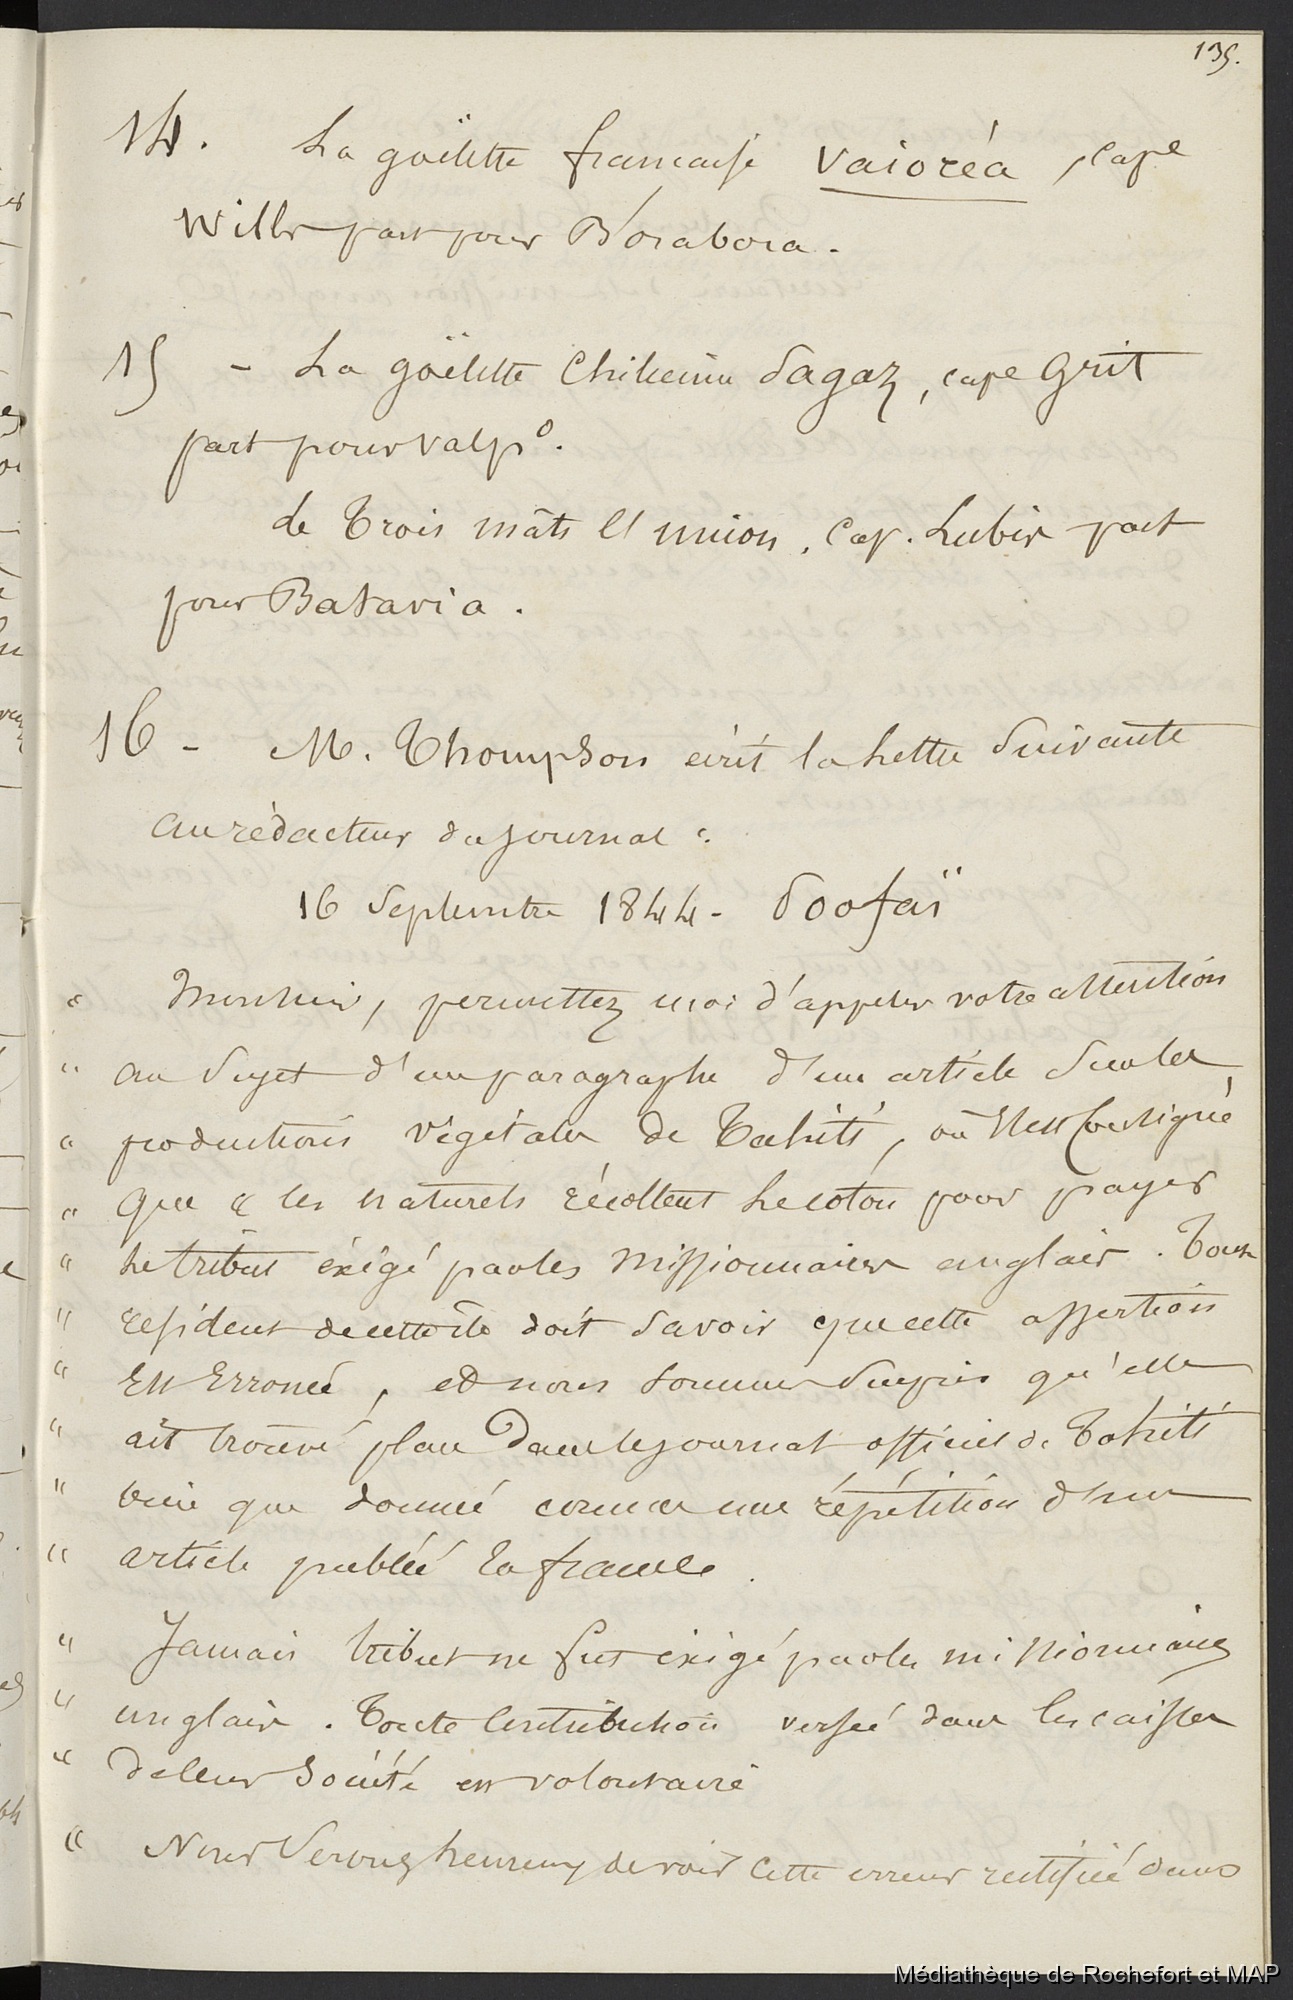 135.
14. La goëlette française Vaioréa, cape
Wills part pour Borabora.
15 - La goëlette Chilienne Sagaz, cape Grit
part pour Valpo.
Le Trois mâts l'union, Cap. Lubin part
pour Batavia.
16 - M. Thompson écrit la lettre suivante
au rédacteur du journal :
16 Septembre 1844 -
" Monsieur, permettez moi d'appeler votre attention
" au sujet d'un paragraphe d'un article sur les
" productions végétales de Tahiti, où il est consigné
" que " les naturels récoltent le coton pour payer
" le tribut éxigé par les missionnaires anglais. Tout
" résident de cette île doit savoir que cette assertion
" est erronée, et nous sommes surpris qu'elle
" ait trouvé place dans le journal officiel de Tahiti
" bien que donnée comme une répétition d'un
" article publié en france.
" Jamais tribut ne fut éxigé par les missionnaires
" anglais. Toute contribution versée dans les caisses
" de leur Société est volontaire
" Nous serons heureux de voir cette erreur rectifiée dans
Médiathèque de Rochefort et MAP